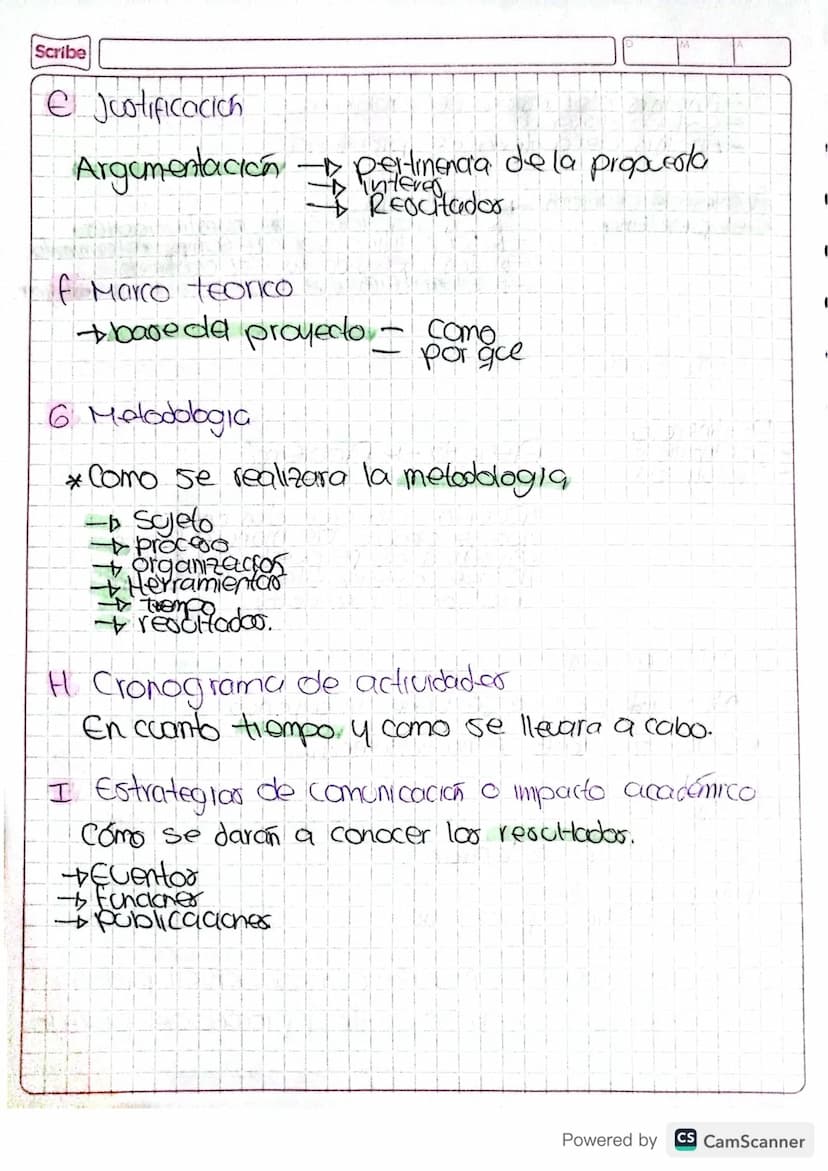 Scribe
D M A
E Justificación
Argumentación → pertinencia de la propuesta
→ interes
→ Resultados
f Marco teorico
→ base del proyecto - como
- por que
G Metodologia
* Como se realizara la metodologia
→ Sujeto
→ proceso
→ organizacion
→ Herramientas
→ tiempo
→ resultados.
H Cronograma de actividades
En cuanto tiempo y como se llevara a cabo.
I Estrategias de comunicación o impacto académico
Cómo se darán a conocer los resultados.
→ Eventos
→ funciones
→ publicaciones
Powered by CS CamScanner